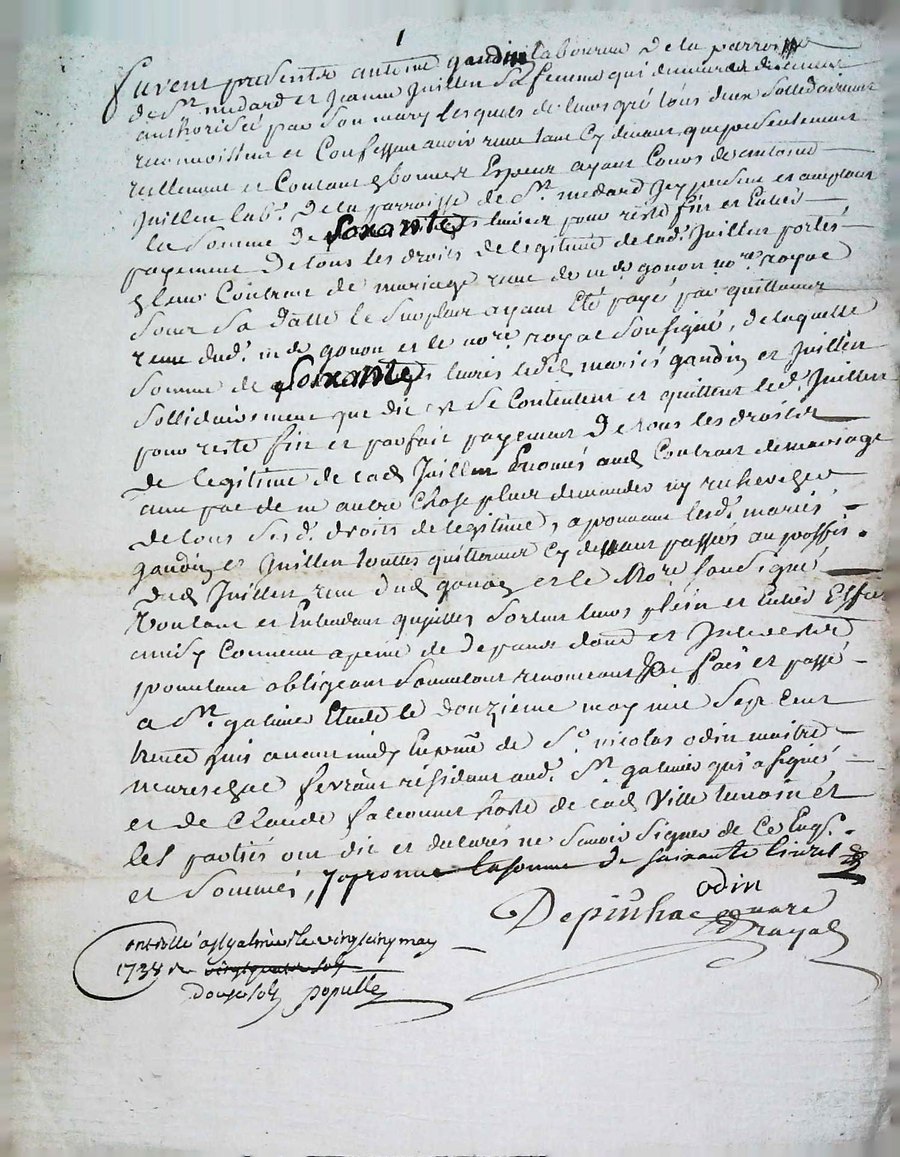 1
furent presents antoine gaudin laboureur de la parroisse
de St. medard et Jeanne Juillen sa femme qui demeure de lieu
authorisée par son mary lesquels de leurs gré tous deux sollidairement
reconnoissent et Confessent avoir reçu tant cy devant que presentement
reellement et Contant bonnes Especes ayant Cours de
Juillen lab. de la parroisse de St. medard Icy present et acceptant
la somme de soixante livres pour reste fin et Entier
payement de tous les droits de legitime de lad. Juillen portés
leur Contrat de mariage reçu de me gonon nore. royal
sous sa datte le surplus ayant Eté payé par quittances
reçue dud. me gonon et le nore. royal sousigné, de laquelle
somme de soixante livres lesd. mariés gaudin et Juillen
sollidairement que dit est se Contentent et quittent led. Juillen
pour reste fin et parfait payement De tous les droits
de legitime de lad Juillen Enoncés aud Contrat de mariage
avec pac de ne autre Chose plus demander ny rechercher
de tous sesd. droits de legitimes, aprouvant lesd. mariés
gaudin et Juillen touttes quittances cy dessus passées au proffit
dud Juillen reçu dud gonon et le Nore sousigné
Voulant et Entendant qu'elles sortent leurs plein et Entier Effet
ainsy Convenu a peine de depans dom. et Interests
pourtant obligeant soumettant renonceant fait et passé
a St. galmier Etude le douzieme may mil sept cent
trente huit avant midy En pnce de Sr. nicolas odin maitre
mareschal résidant aud. St. galmier qui a signé
et de Claude falconnet hoste de lad Ville temoin et
les parties ont dit et declarés ne scavoir signer de ce Enqs.
et sommés, Japrouve la somme de soixante livres
odin
Depinhac nore
royal
controllé a st galmier le vingt cinq may
1738 vingt quatre sols
douze sols populle